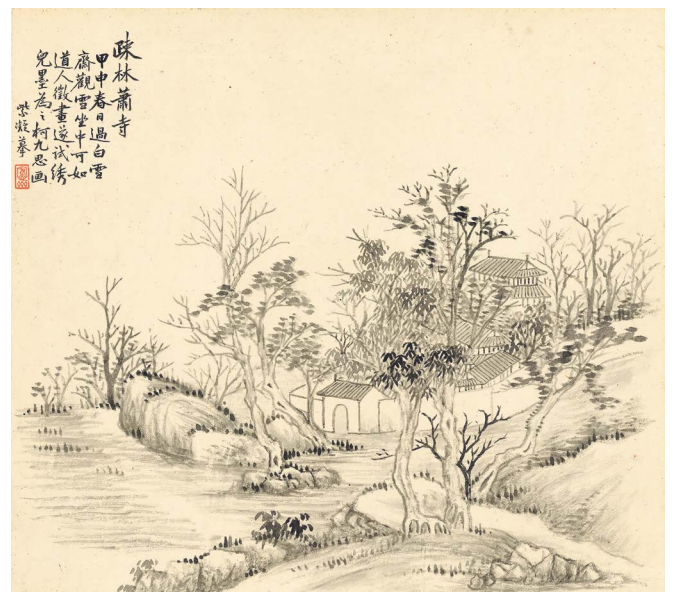 疎林蕭寺
甲申春日過白雪
齋觀雪坐中可如
道人徵畫遂試綉
兒墨為之柯九思画
紫凝摹